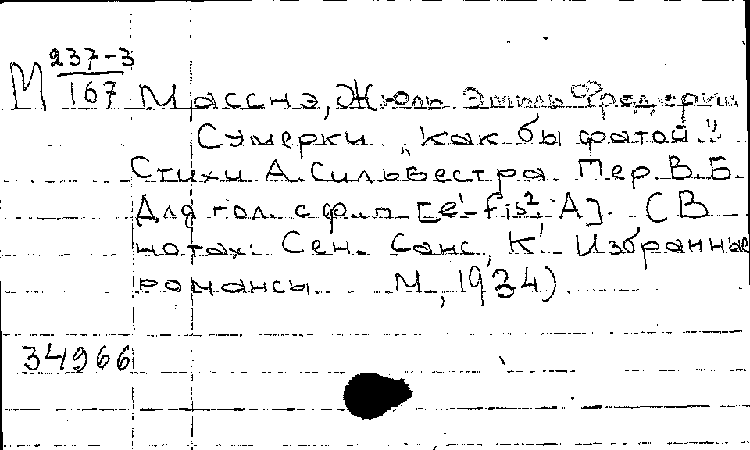 М 237-3
167
Массна, Жюль Эмиль Фредерик
Сумерки „как бы фатой"
Стихи А. Сильвестра. Пер. В.Б.
Для гол. с ф-п [e¹-fis²; A]. (В
нотах: Сен-Санс, К. Избранные
романсы. М, 1934).
34966